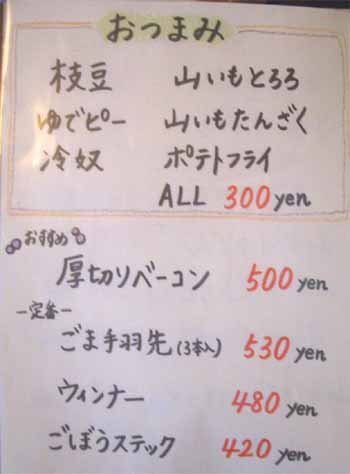 おつまみ
枝豆 山いもとろろ
ゆでピー 山いもたんざく
冷奴 ポテトフライ
ALL 300yen
おすすめ
厚切りベーコン 500yen
ー定番ー
ごま手羽先(3本入) 530yen
ウィンナー 480yen
ごぼうステック 420yen